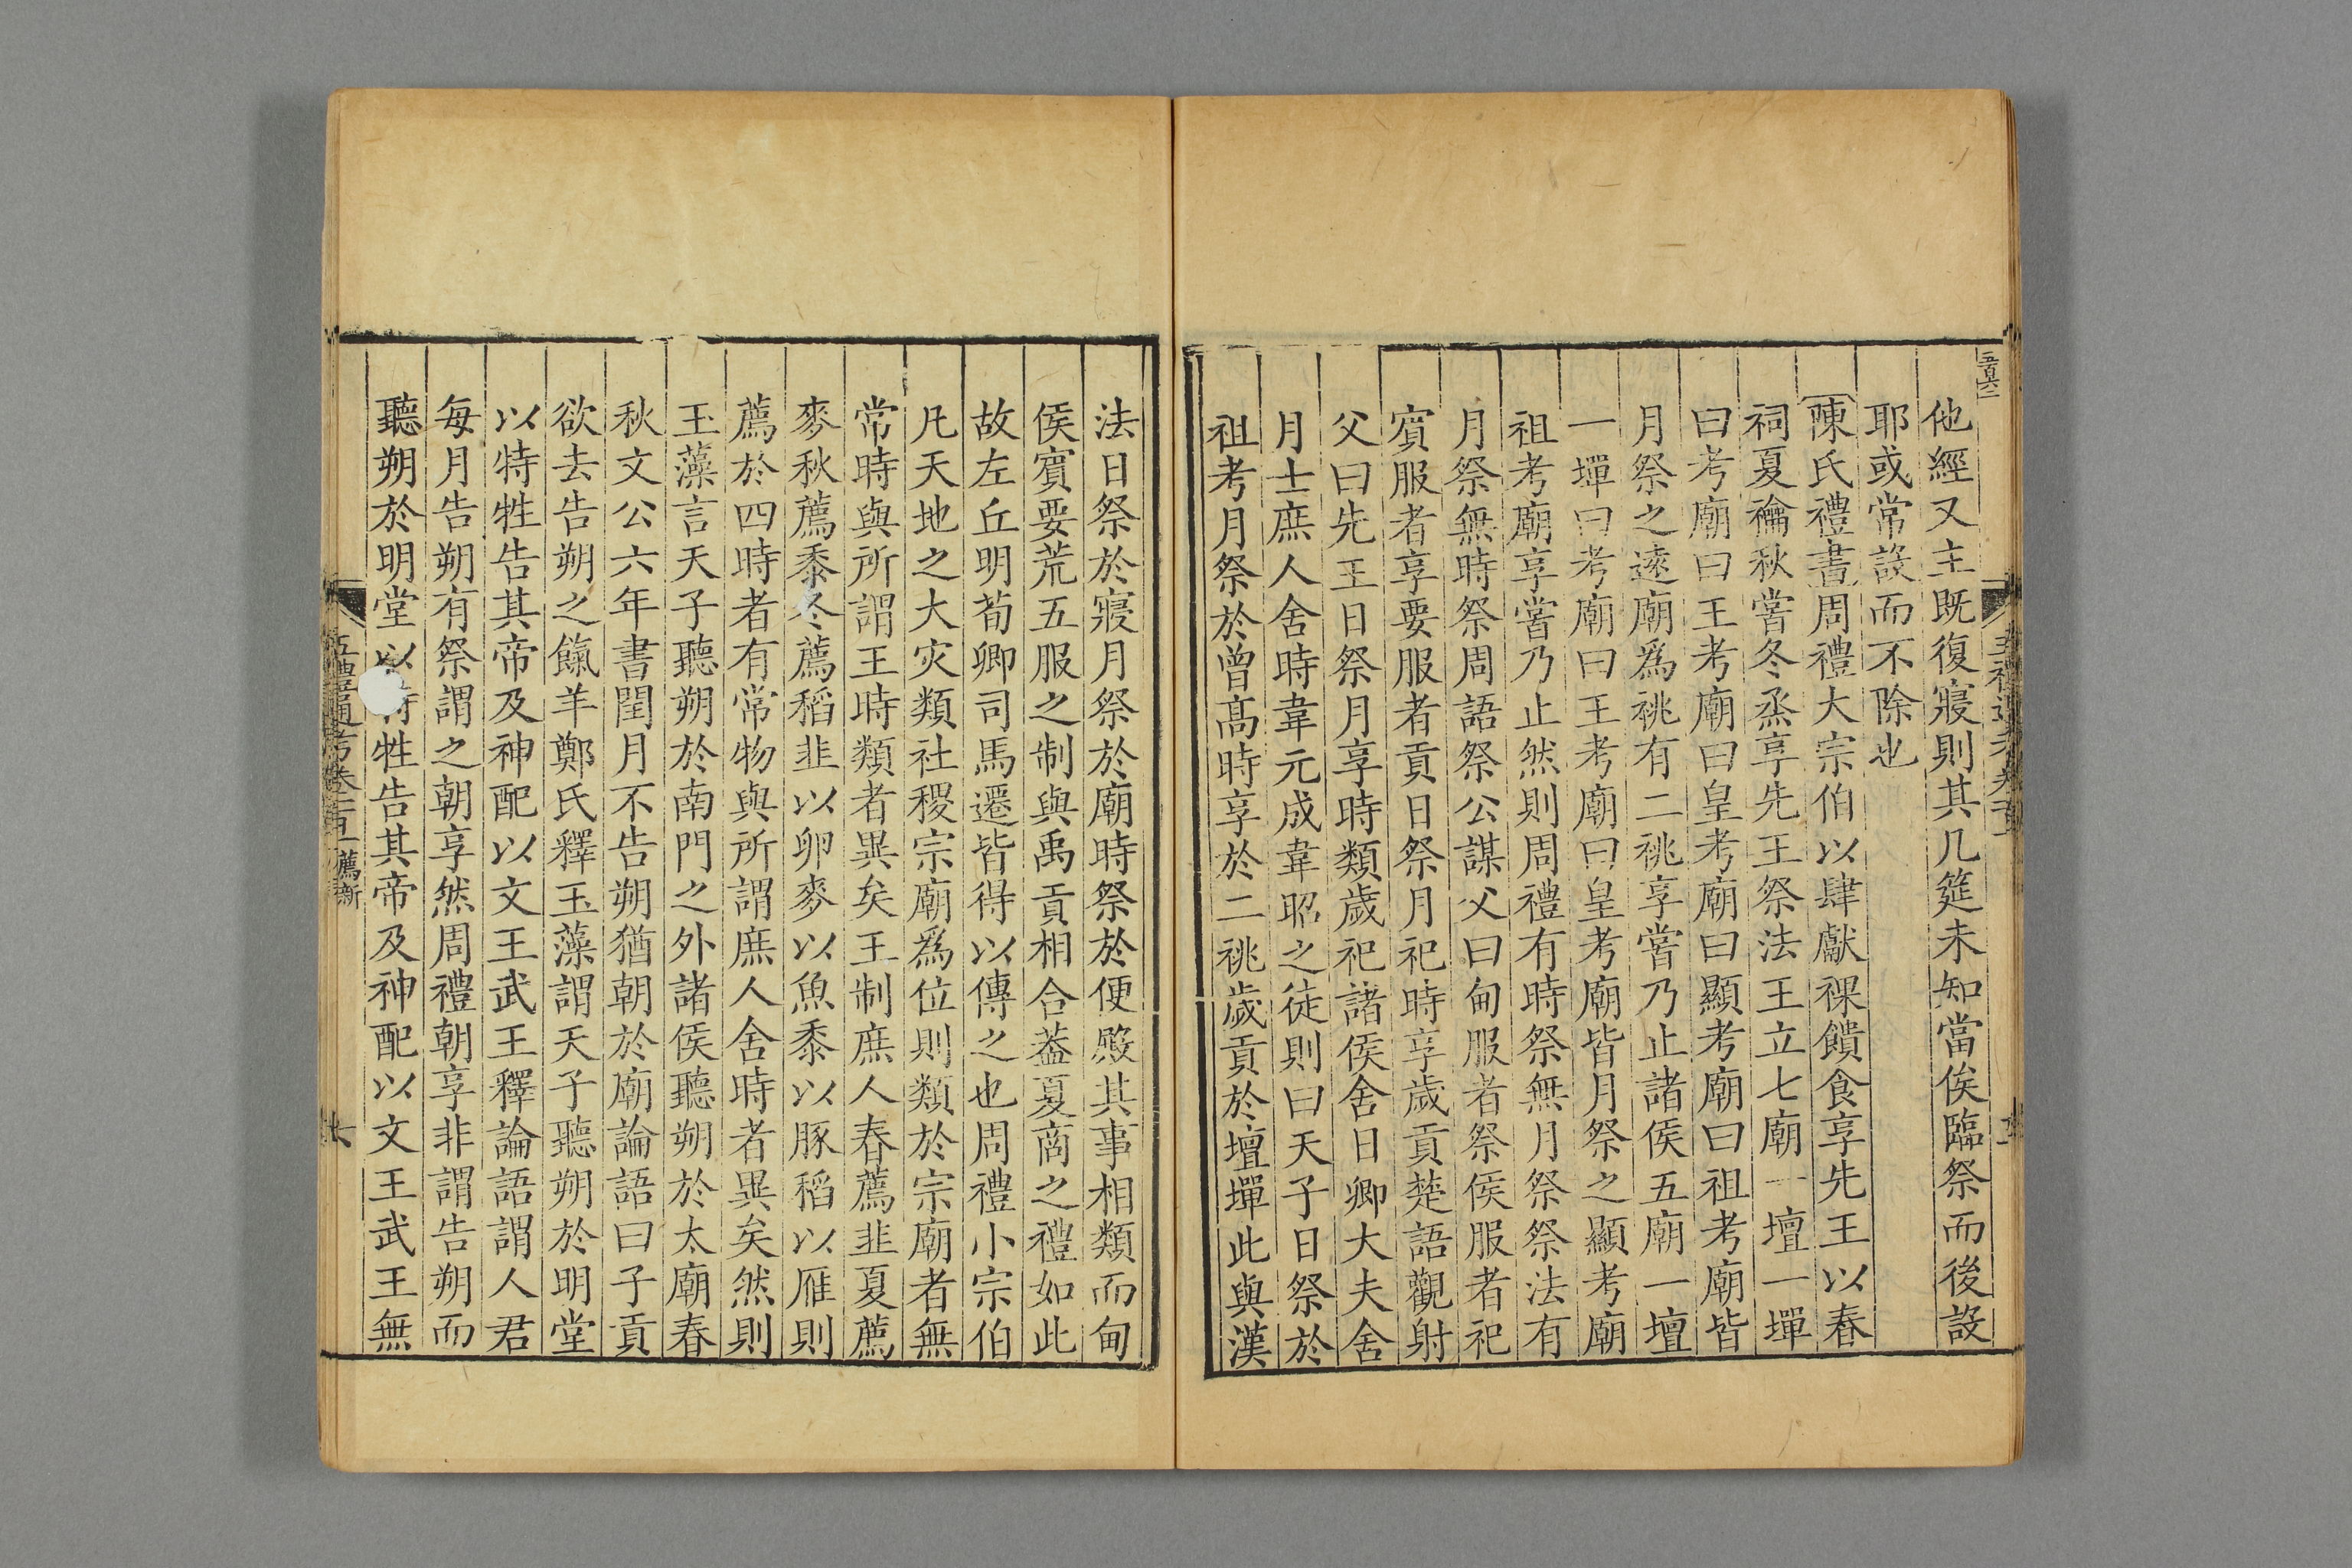 他經又主既復寢則其几筵未知當俟臨祭而後設
耶或常設而不除也
陳氏禮書周禮大宗伯以肆獻祼饋食享先王以春
祠夏禴秋嘗冬烝享先王祭法王立七廟一壇一墠
曰考廟曰王考廟曰皇考廟曰顯考廟曰祖考廟皆
月祭之遠廟爲祧有二祧享嘗乃止諸侯五廟一壇
一墠曰考廟曰王考廟曰皇考廟皆月祭之顯考廟
祖考廟享嘗乃止然則周禮有時祭無月祭祭法有
月祭無時祭周語祭公謀父曰甸服者祭侯服者祀
賓服者享要服者貢日祭月祀時享歲貢楚語觀射
父曰先王日祭月享時類歲祀諸侯舍日卿大夫舍
月士庶人舍時韋元成韋昭之徒則曰天子日祭於
祖考月祭於曾高時享於二祧歲貢於壇墠此與漢
法日祭於寢月祭於廟時祭於便殿其事相類而甸
侯賓要荒五服之制與禹貢相合葢夏商之禮如此
故左丘明荀卿司馬遷皆得以傳之也周禮小宗伯
凡天地之大灾類社稷宗廟爲位則類於宗廟者無
常時與所謂王時類者異矣王制庶人春薦韭夏薦
麥秋薦黍冬薦稻韭以卵麥以魚黍以豚稻以雁則
薦於四時者有常物與所謂庶人舍時者異矣然則
玉藻言天子聽朔於南門之外諸侯聽朔於太廟春
秋文公六年書閏月不告朔猶朝於廟論語曰子貢
欲去告朔之餼羊鄭氏釋玉藻謂天子聽朔於明堂
以特牲告其帝及神配以文王武王釋論語謂人君
每月告朔有祭謂之朝享然周禮朝享非謂告朔而
聽朔於明堂以特牲告其帝及神配以文王武王無
五禮通考卷一百一 薦新